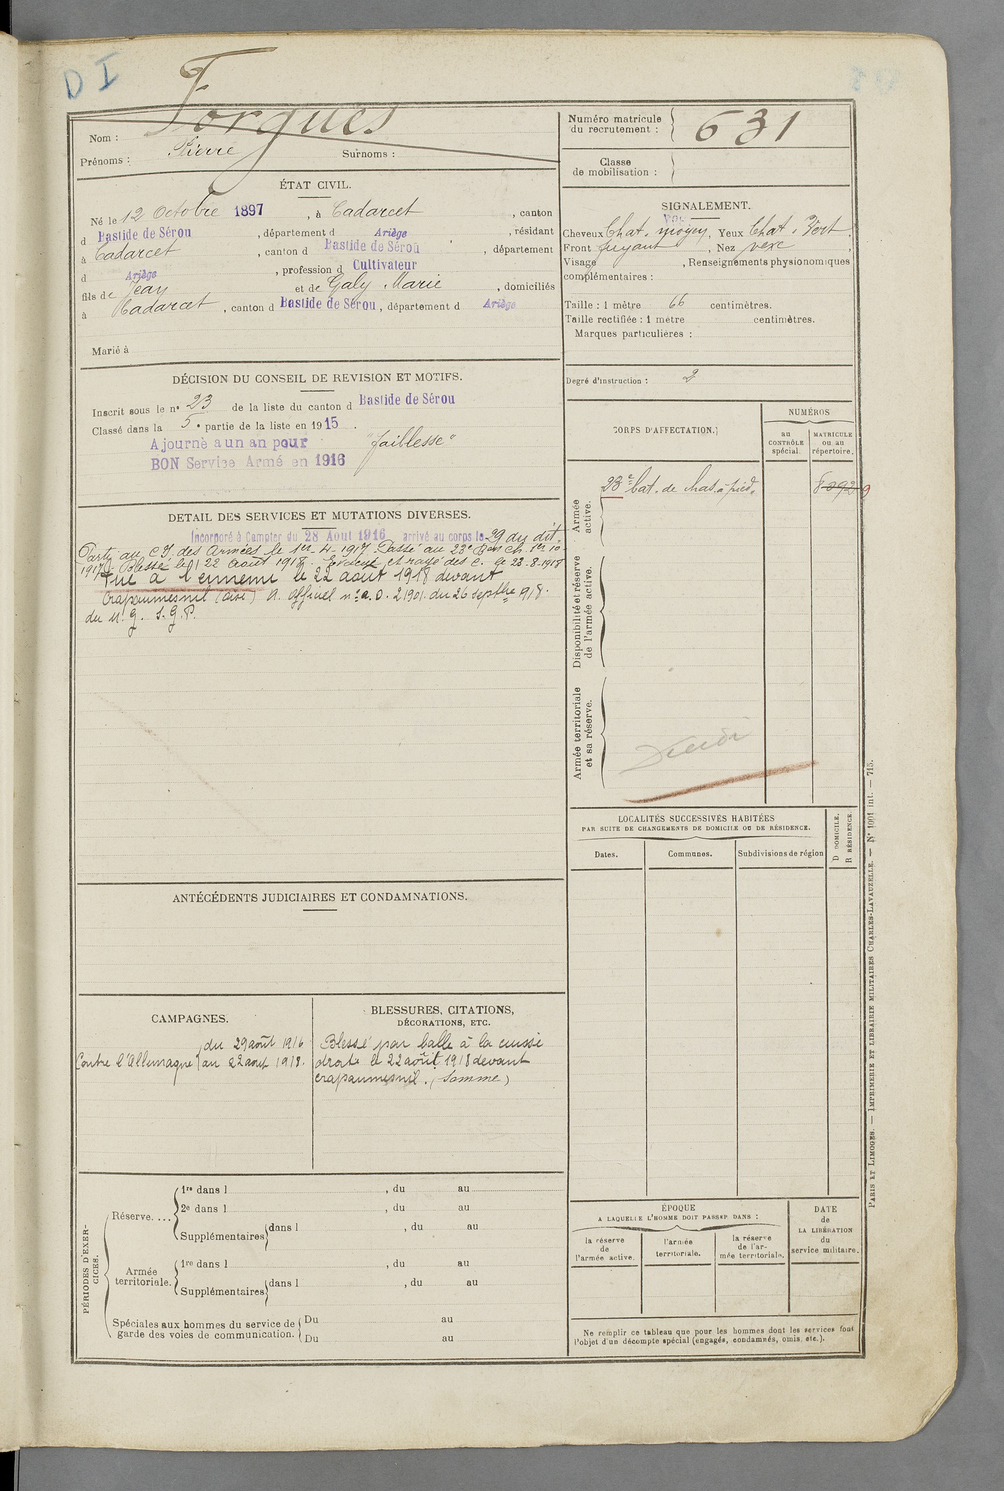 D I
Forgues
Nom :
Prénoms : Pierre Surnoms :
Numéro matricule du recrutement : 631
Classe de mobilisation :
ÉTAT CIVIL.
Né le 12 Octobre 1897, à Cadarcet, canton
d Bastide de Sérou, département d Ariège, résidant
à Cadarcet, canton d Bastide de Sérou, département
d Ariège, profession d Cultivateur
fils de Jean et de Galy Marie, domiciliés
à Cadarcet, canton d Bastide de Sérou, département d Ariège
Marié à
SIGNALEMENT.
Cheveux Chat. moyen Yeux Chat. Vert
Front fuyant, Nez vexe
Visage, Renseignements physionomiques
complémentaires :
Taille : 1 mètre 66 centimètres.
Taille rectifiée : 1 mètre centimètres.
Marques particulières :
Degré d'instruction : 2
DÉCISION DU CONSEIL DE REVISION ET MOTIFS.
Inscrit sous le n° 23 de la liste du canton d Bastide de Sérou
Classé dans la 5e partie de la liste en 1915.
Ajourné a un an pour "faiblesse"
BON Service Armé en 1916
DETAIL DES SERVICES ET MUTATIONS DIVERSES.
Incorporé à Compter du 28 Aout 1916 arrivé au corps le 29 du dit.
Parti au C.I. des Armées le 1er 4-1917. Passé au 23e Bon Ch. 1er 10-
1917. Blessé le 22 août 1918. Evacué et rayé des c. le 22-8-1918
Tué à l'ennemi le 22 août 1918 devant
Crapaumesnil (Oise) A. officiel n° 2901. du 26 septbre 918.
du M. G. S.G.P.
CORPS D'AFFECTATION.
NUMÉROS
au CONTRÔLE spécial.
MATRICULE ou au répertoire.
Armée active.
23e bat. de chas. à pied.
8092
9
Disponibilité et réserve de l'armée active.
Armée territoriale et sa réserve.
LOCALITÉS SUCCESSIVES HABITÉES
PAR SUITE DE CHANGEMENTS DE DOMICILE OU DE RÉSIDENCE.
Dates.
Communes.
Subdivisions de région
D DOMICILE.
R RÉSIDENCE.
ANTÉCÉDENTS JUDICIAIRES ET CONDAMNATIONS.
CAMPAGNES.
Contre l'Allemagne
du 29 août 1916
au 22 août 1918.
BLESSURES, CITATIONS,
DÉCORATIONS, ETC.
Blessé par balle à la cuisse
droite le 22 août 1918 devant
crapaumesnil. (Somme)
PÉRIODES D'EXERCICES.
Réserve....
1re dans l , du au
2e dans l , du au
Supplémentaires dans l , du au
Armée territoriale.
1re dans l , du au
Supplémentaires dans l , du au
Spéciales aux hommes du service de
garde des voies de communication.
Du au
Du au
ÉPOQUE
A LAQUELLE L'HOMME DOIT PASSER DANS :
la réserve de l'armée active.
l'armée territoriale.
la réserve de l'armée territoriale.
DATE de LA LIBÉRATION du service militaire.
Ne remplir ce tableau que pour les hommes dont les services font
l'objet d'un décompte spécial (engagés, condamnés, omis, etc.).
PARIS ET LIMOGES. — IMPRIMERIE ET LIBRAIRIE MILITAIRES CHARLES-LAVAUZELLE. — N° 1001 int. — 715.